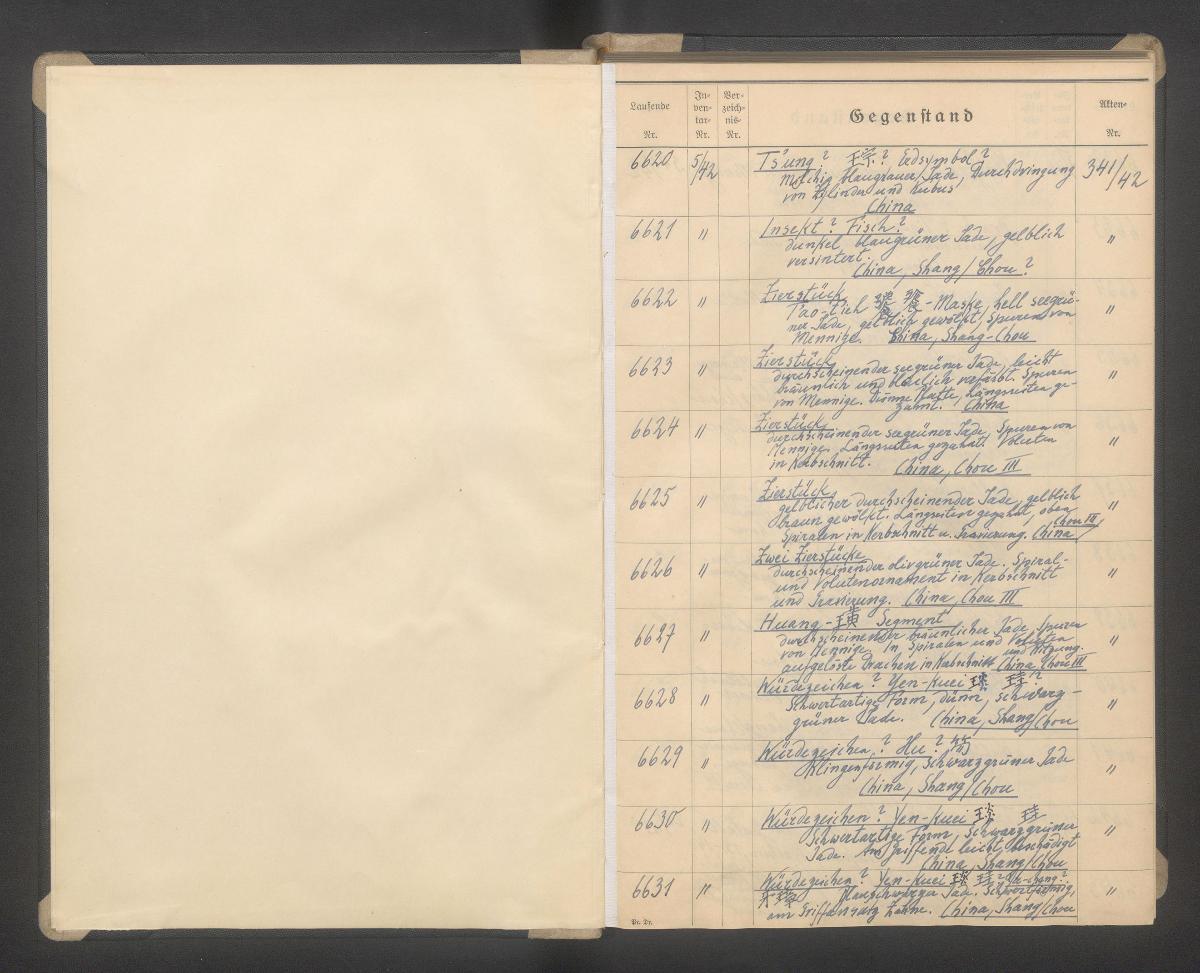 Laufende Nr. In-ven-tar-Nr. Ver-zeich-nis-Nr. Gegenstand Akten-Nr.
6620 5/42 Ts'ung? 琮? Erdsymbol? 341/42
Milchig blaugrauer Jade, Durchdringung
von Zylinder und Kubus
China
6621 " Insekt? Fisch? "
dunkel blaugrüner Jade, gelblich
versintert.
China, Shang/Chou?
6622 " Zierstück "
T'ao-tieh 饕餮-Maske, hell seegrü-
ner Jade, gelblich gewölkt, Spuren von
Mennige. China, Shang-Chou
6623 " Zierstück "
durchscheinender seegrüner Jade, leicht
bräunlich und bläulich verfärbt. Spuren
von Mennige. Dünne Platte, Längsseiten ge-
zahnt. China
6624 " Zierstück "
durchscheinender seegrüner Jade, Spuren von
Mennige. Längsseiten gezahnt. Voluten
in Kerbschnitt. China, Chou III
6625 " Zierstück "
gelblicher durchscheinender Jade, gelblich
braun gewölkt. Längsseiten gezahnt, oben
Spiralen in Kerbschnitt u. Gravierung. China Chou III
6626 " Zwei Zierstücke "
durchscheinender olivgrüner Jade. Spiral-
und Volutenornament in Kerbschnitt
und Gravierung. China, Chou III
6627 " Huang-璜 Segment "
durchscheinender bräunlicher Jade, Spuren
von Mennige. In Spiralen und Voluten
aufgelöste Drachen in Kerbschnitt und Ritzung. China Chou III
6628 " Würdezeichen? Yen-Kuei 琰圭? "
Schwertartige Form, dünn, schwarz-
grüner Jade. China, Shang/Chou
6629 " Würdezeichen? Hu? 笏 "
Klingenförmig, schwarzgrüner Jade
China, Shang/Chou
6630 " Würdezeichen? Yen-Kuei 琰圭 "
Schwertartige Form, schwarzgrüner
Jade. Am Griffende leicht beschädigt
China, Shang/Chou
6631 " Würdezeichen? Yen-Kuei 琰圭? Ya-chang? "
牙璋 Jade. Schwertförmig,
am Griffansatz Zähne. China, Shang/Chou
Pr. Dr.